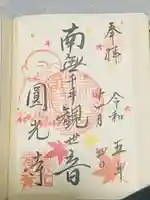 奉拝
令和五年
十一月
南無千手観世音
圓光寺